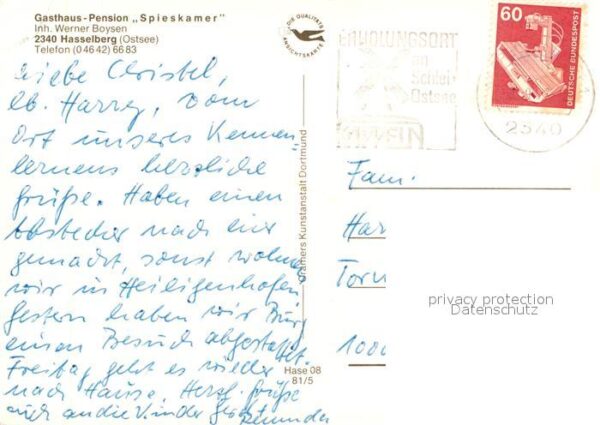 Gasthaus-Pension „Spieskamer"
Inh. Werner Boysen
2340 Hasselberg (Ostsee)
Telefon (0 46 42) 66 83
DIE QUALITÄTS
ANSICHTSKARTE
ERHOLUNGSORT
an
Schlei-
Ostsee
60
DEUTSCHE BUNDESPOST
2340
Liebe Christel,
lb. Harrey, vom
Ort unseres Kennen-
lernens herzliche
Grüße. Haben einen
Abstecher nach hier
gemacht, sonst wohnen
wir in Heiligenhafen
Gestern haben wir Burg
einen Besuch abgestattet.
Freitag geht es wieder
nach Hause. Herzl. Grüße
auch an die Kinder
Cramers Kunstanstalt Dortmund
Hase 08
81/5
Fam.
Har
Torn
1000
privacy protection
Datenschutz